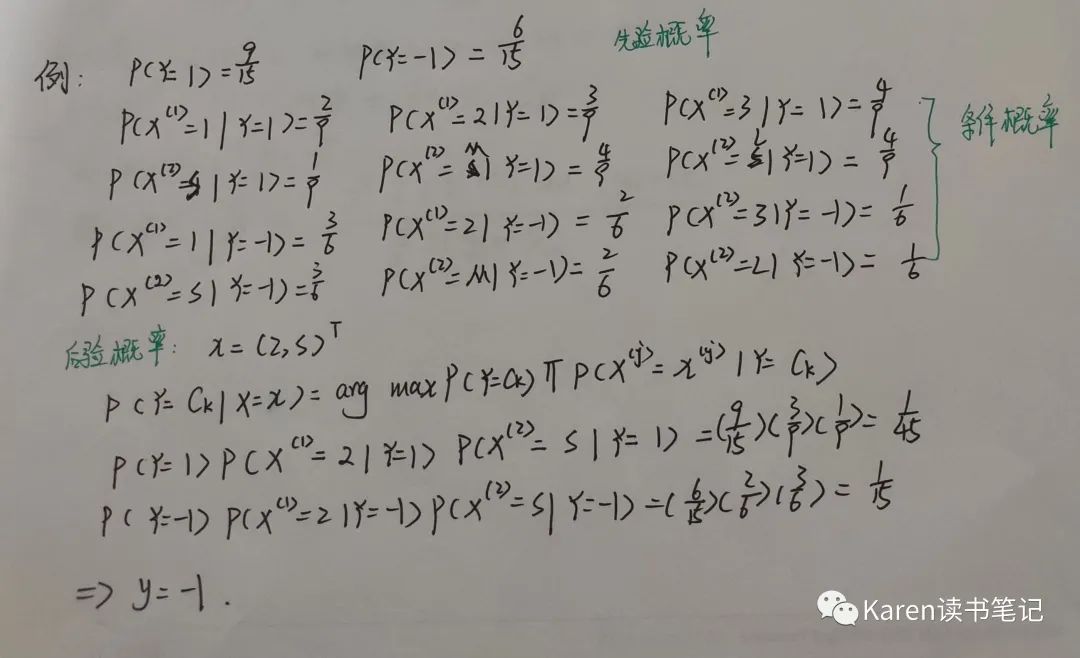 例: P(Y=1)=9/15 P(Y=-1)=6/15 先验概率
P(X⁽¹⁾=1|Y=1)=2/9 P(X⁽¹⁾=2|Y=1)=3/9 P(X⁽¹⁾=3|Y=1)=4/9 条件概率
P(X⁽²⁾=S|Y=1)=1/9 P(X⁽²⁾=M|Y=1)=4/9 P(X⁽²⁾=L|Y=1)=4/9
P(X⁽¹⁾=1|Y=-1)=3/6 P(X⁽¹⁾=2|Y=-1)=2/6 P(X⁽²⁾=3|Y=-1)=1/6
P(X⁽²⁾=S|Y=-1)=3/6 P(X⁽²⁾=M|Y=-1)=2/6 P(X⁽²⁾=L|Y=-1)=1/6
后验概率: x=(2,S)ᵀ
P(Y=Ck|X=x)=arg max P(Y=Ck)π P(X⁽ʲ⁾=x⁽ʲ⁾|Y=Ck)
P(Y=1)P(X⁽¹⁾=2|Y=1) P(X⁽²⁾=S|Y=1)=(9/15)(3/9)(1/9)=1/45
P(Y=-1)P(X⁽¹⁾=2|Y=-1)P(X⁽²⁾=S|Y=-1)=(6/15)(2/6)(3/6)=1/15
=> y=-1.
Karen读书笔记